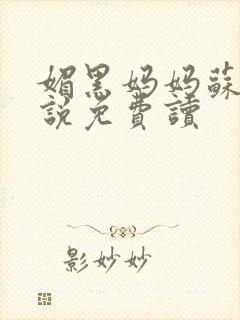 媚黑妈妈蘇
説免費讀
影妙妙